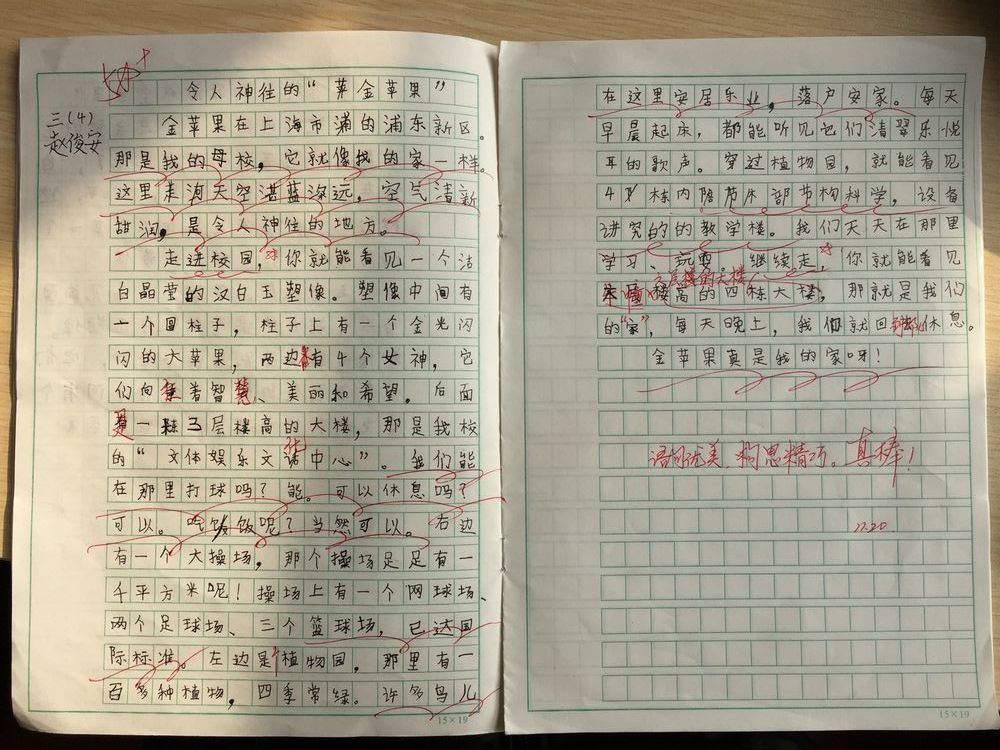 好+
令人神往的“苹金苹果”
三(4)
赵俊安
金苹果在上海市浦的浦东新区。
那是我的母校，它就像我的家一样。
这里美海天空湛蓝深远，空气清新
甜润，是令人神往的地方。
走进校园，你就能看见一个洁
白晶莹的汉白玉塑像。塑像中间有
一个圆柱子，柱子上有一个金光闪
闪的大苹果，两边有4个女神，它
们向着智慧、美丽和希望。后面
是一栋3层楼高的大楼，那是我校
的“文体娱乐文化中心”。我们能
在那里打球吗？能。可以休息吗？
可以。吃饭饭呢？当然可以。右边
有一个大操场，那个操场足足有一
千平方米呢！操场上有一个网球场、
两个足球场、三个篮球场，已达国
际标准。左边是植物园，那里有一
百多种植物，四季常绿。许多鸟儿
15×19
在这里安居乐业，落户安家。每天
早晨起床，都能听见它们清翠乐悦
耳的歌声。穿过植物园，就能看见
4栋内陪节休部节构科学，设备
讲究的的教学楼。我们天天在那里
学习、玩耍。继续走，你就能看见
层楼的大楼
楼高的四栋大楼，那就是我们
的“家”，每天晚上，我们就回那休息。
金苹果真是我的家呀！
语句优美，构思精巧。真棒！
12.20
15×19